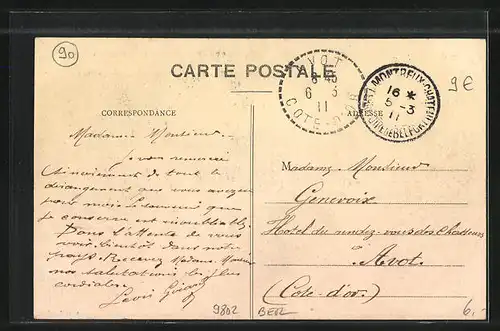 90
CARTE POSTALE
AVOT
6 45
6 3
11
COTE-D'OR
MONTREUX-CHATEAU
16 *
5-3
11
9€
CORRESPONDANCE
ADRESSE
Madame Monsieur
Je vous remercie
sincèrement de tout le
dérangement que vous avez eu
pour moi le souvenir que
je conserve est inoubliable
Dans l'attente de vous
voir bientôt dans notre
pays. Recevez Madame Monsieur
nos salutations les plus
cordiales
Léon
Madame Monsieur
Genevoix
Hôtel du rendez-vous des Chasseurs
Avot
(Côte-d'or)
9802
BERL
6.-